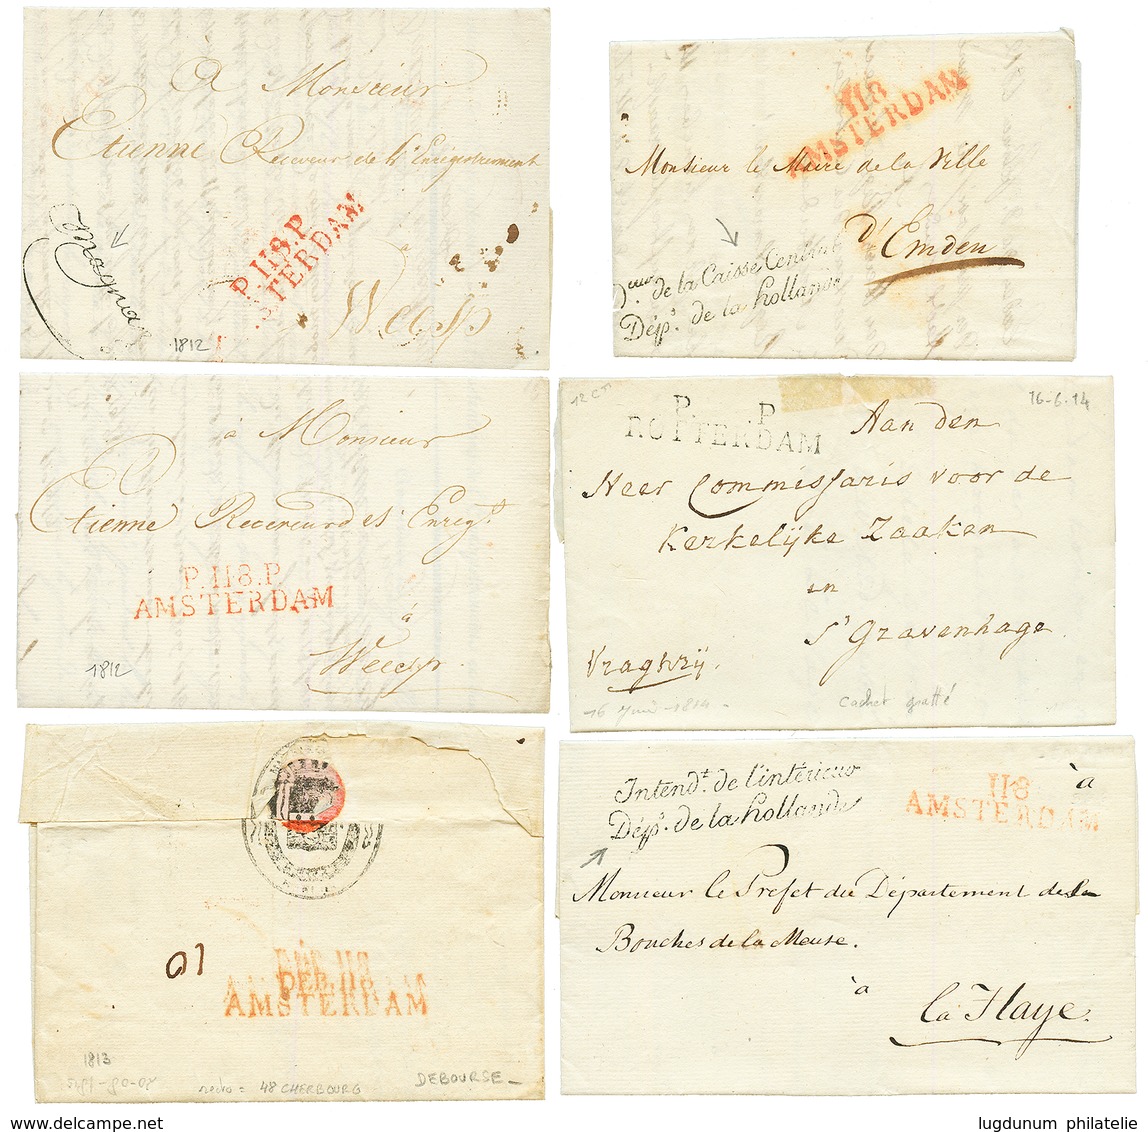 A Monsieur
Etienne Receveur de l'Enregistrement
P.118.P.
STERDAM
à
Weesp
1812
118
AMSTERDAM
Monsieur le Maire de la Ville
d'Emden
de la Caisse Centrale
Dép.t de la Hollande
à Monsieur
Etienne Receveur d Enreg.t
P.118.P.
AMSTERDAM
à
Weesp
1812
12 CTI
16-6-14
P. P
ROTTERDAM
Aan den
Heer Commissaris voor de
Kerkelijke Zaaken
in
s'Gravenhage
Vraghvrij.
16 Juni 1814 -
cachet gratté
DEB.118
AMSTERDAM
1813
recto = 48 CHERBOURG
DEBOURSE_
Intend.t de l'intérieur
Dép.t de la Hollande
118
AMSTERDAM
à
Monsieur le Préfet du Département de la
Bouches de la Meuse.
à
la Haye.
www.delcampe.net
lugdunum philatelie